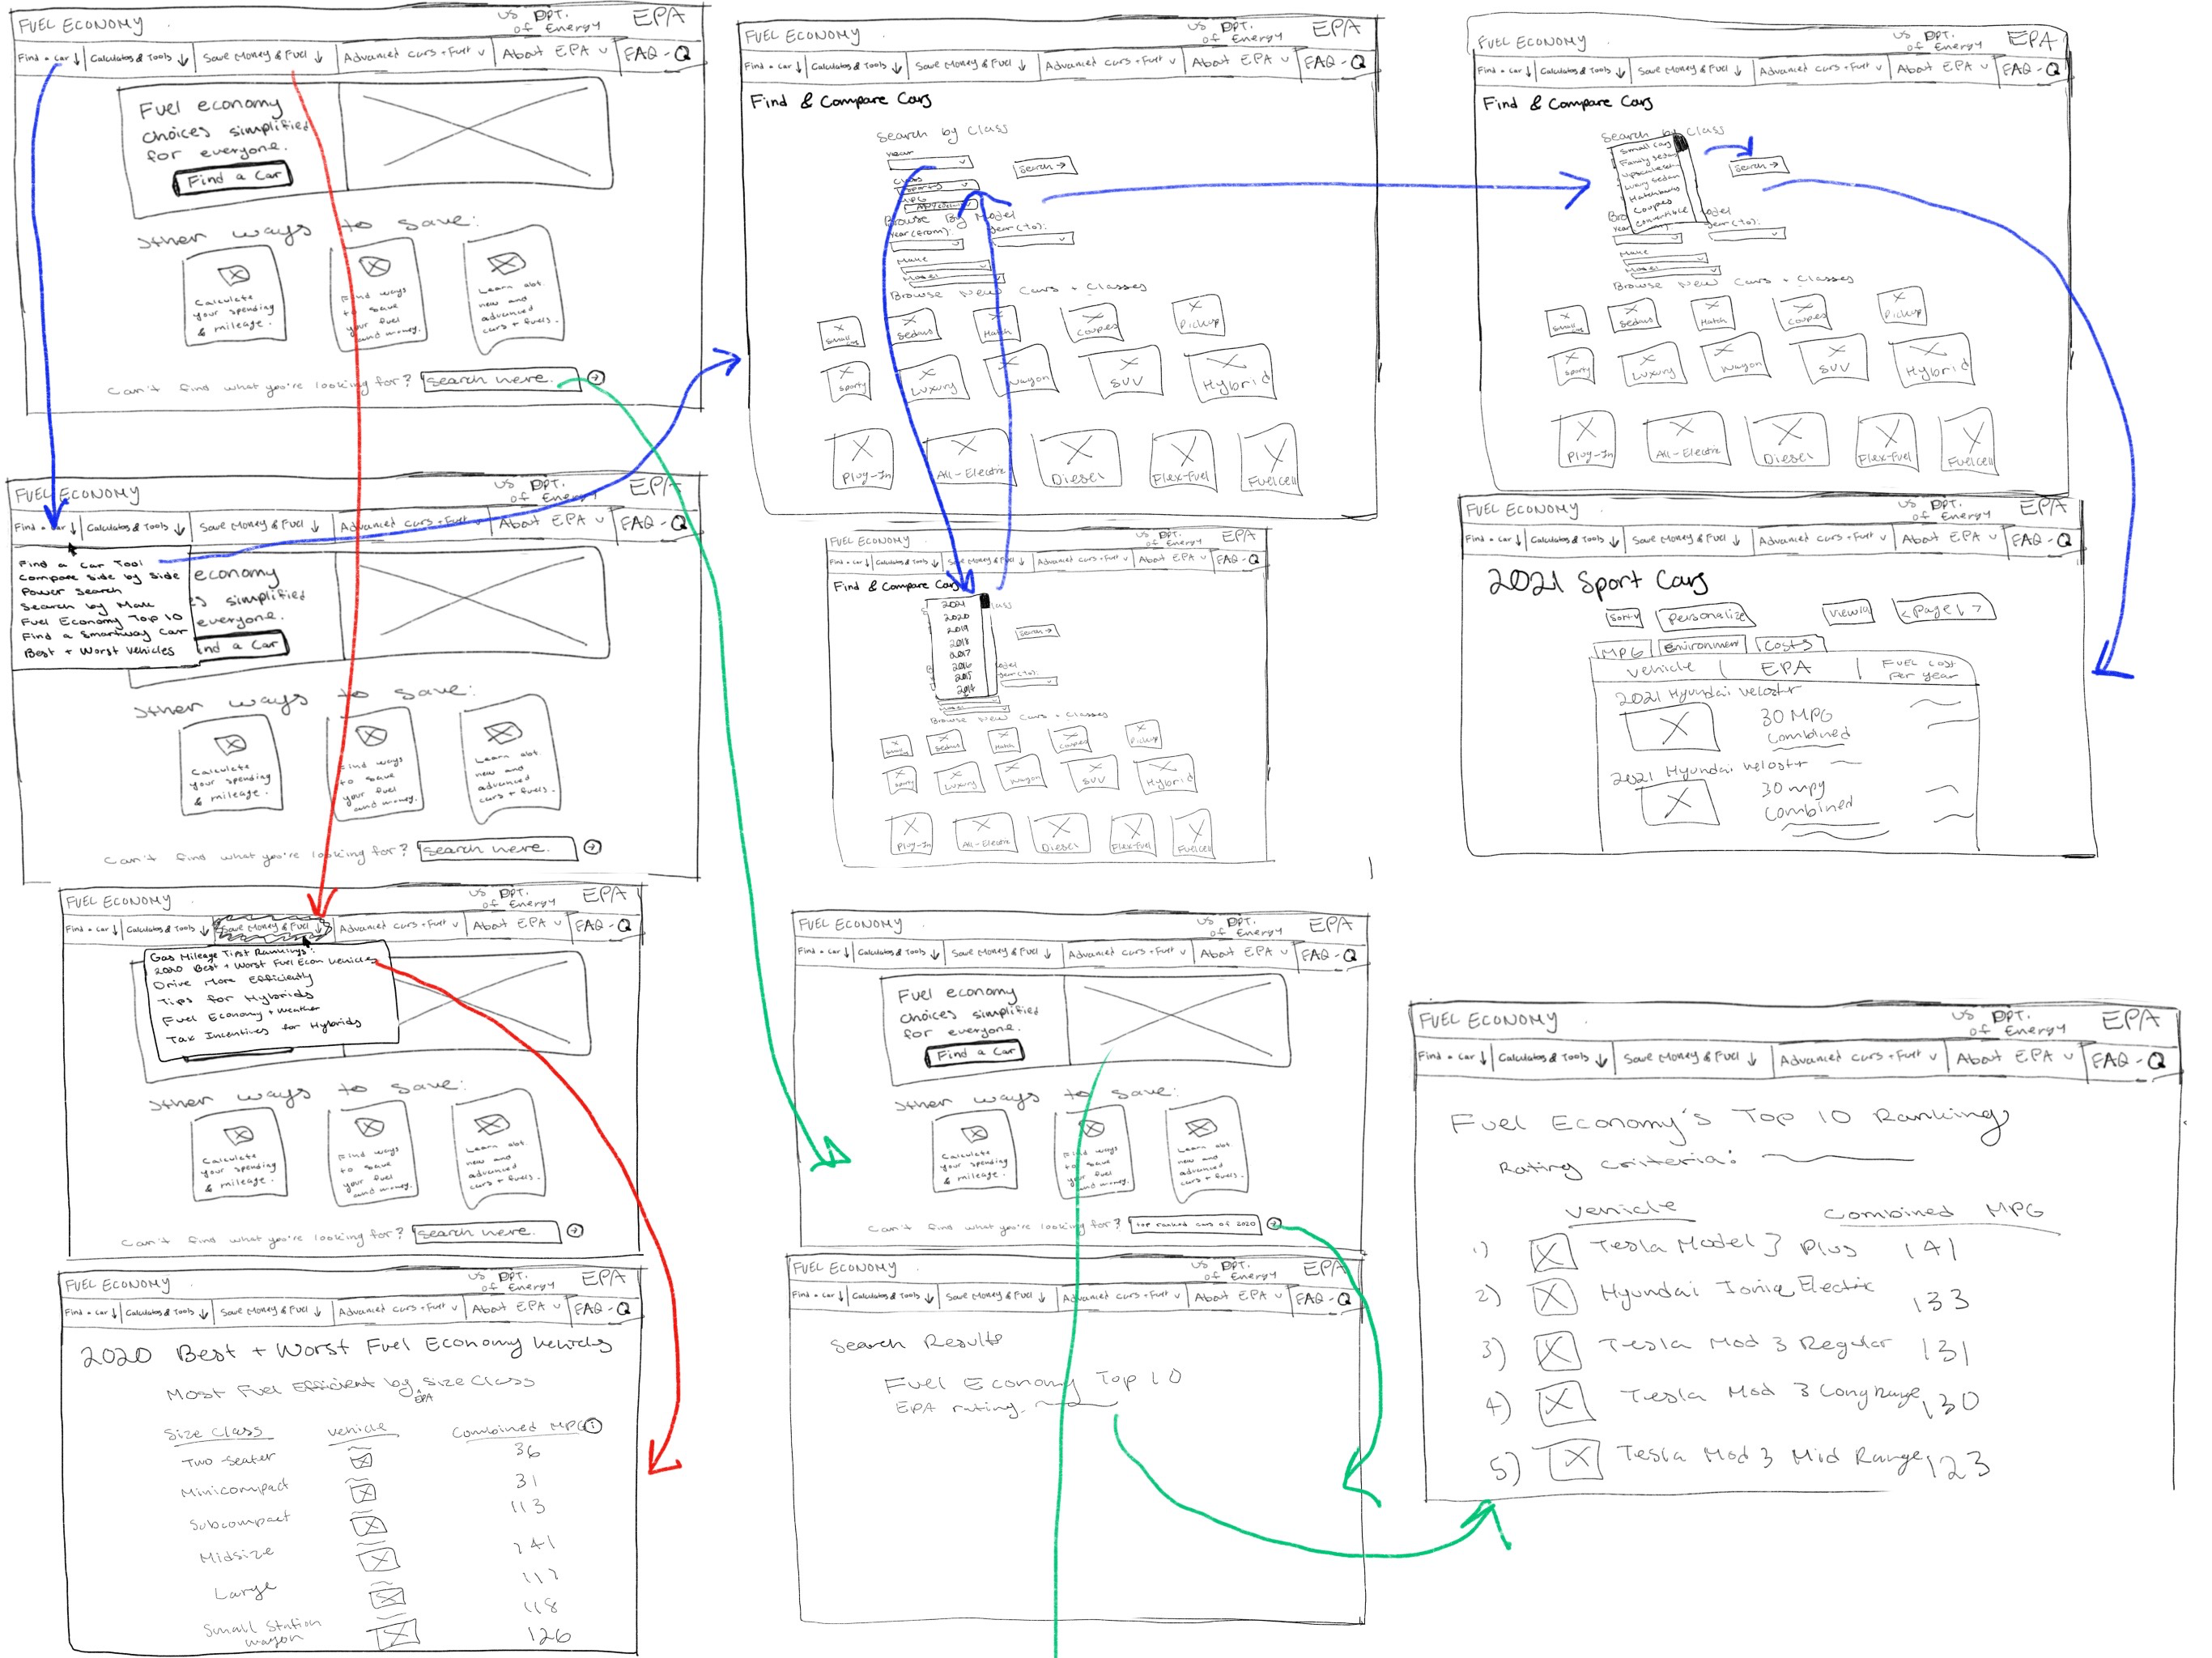 FUEL ECONOMY
US DPT. of Energy
EPA
Find a Car ↓ Calculators & Tools ↓ Save Money & Fuel ↓ Advanced cars + Fuel v About EPA v FAQ - Q
Fuel economy
choices simplified
for everyone.
Find a Car
Other ways to save:
Calculate
your spending
& mileage.
Find ways
to save
your fuel
and money.
Learn abt.
new and
advanced
cars + fuels.
Can't find what you're looking for? search here.
FUEL ECONOMY
US DPT. of Energy
EPA
Find a Car ↓ Calculators & Tools ↓ Save Money & Fuel ↓ Advanced cars + Fuel v About EPA v FAQ - Q
Find a Car Tool
Compare Side by Side
Power Search
Search by Make
Fuel Economy Top 10
Find a Smartway Car
Best + Worst Vehicles
economy
simplified
everyone.
nd a Car
Other ways to save:
Calculate
your spending
& mileage.
Find ways
to save
your fuel
and money.
Learn abt.
new and
advanced
cars + fuels.
Can't find what you're looking for? search here.
FUEL ECONOMY
US DPT. of Energy
EPA
Find a Car ↓ Calculators & Tools ↓ Save Money & Fuel ↓ Advanced cars + Fuel v About EPA v FAQ - Q
Gas Mileage Tips Rankings
2020 Best + Worst Fuel Econ Vehicles
Drive More Efficiently
Tips for Hybrids
Fuel Economy + Weather
Tax Incentives for Hybrids
Other ways to save:
Calculate
your spending
& mileage.
Find ways
to save
your fuel
and money.
Learn abt.
new and
advanced
cars + fuels.
Can't find what you're looking for? search here.
FUEL ECONOMY
US DPT. of Energy
EPA
Find a Car ↓ Calculators & Tools ↓ Save Money & Fuel ↓ Advanced cars + Fuel v About EPA v FAQ - Q
2020 Best + Worst Fuel Economy Vehicles
Most Fuel Efficient by EPA Size Class
Size Class vehicle Combined MPG i
Two-Seater 36
Minicompact 31
Subcompact 113
Midsize 141
Large 117
Small Station wagon 118
126
FUEL ECONOMY
US DPT. of Energy
EPA
Find a Car ↓ Calculators & Tools ↓ Save Money & Fuel ↓ Advanced cars + Fuel v About EPA v FAQ - Q
Find & Compare Cars
Search by Class
Year
Class
Sporty
MPG
Search →
Browse By Model
Year (from): Year (to):
Make
Model
Browse New Cars + Classes
Small Sedans Hatch Coupes Pickup
Sporty Luxury Wagon SUV Hybrid
Plug-In All-Electric Diesel Flex-Fuel Fuelcell
FUEL ECONOMY
US DPT. of Energy
EPA
Find a Car ↓ Calculators & Tools ↓ Save Money & Fuel ↓ Advanced cars + Fuel v About EPA v FAQ - Q
Find & Compare Cars
2021
2020
2019
2018
2017
2016
2015
2014
Search →
Year (to):
Model
Browse New Cars + Classes
Small Sedans Hatch Coupes Pickup
Sporty Luxury Wagon SUV Hybrid
Plug-In All-Electric Diesel Flex-Fuel Fuelcell
FUEL ECONOMY
US DPT. of Energy
EPA
Find a Car ↓ Calculators & Tools ↓ Save Money & Fuel ↓ Advanced cars + Fuel v About EPA v FAQ - Q
Fuel economy
choices simplified
for everyone.
Find a Car
Other ways to save:
Calculate
your spending
& mileage.
Find ways
to save
your fuel
and money.
Learn abt.
new and
advanced
cars + fuels.
Can't find what you're looking for? top ranked cars of 2020
FUEL ECONOMY
US DPT. of Energy
EPA
Find a Car ↓ Calculators & Tools ↓ Save Money & Fuel ↓ Advanced cars + Fuel v About EPA v FAQ - Q
Search Results
Fuel Economy Top 10
EPA rating
FUEL ECONOMY
US DPT. of Energy
EPA
Find a Car ↓ Calculators & Tools ↓ Save Money & Fuel ↓ Advanced cars + Fuel v About EPA v FAQ - Q
Find & Compare Cars
Search by Class
Small Cars
Family Sedans
Upscale Sedan
Luxury Sedan
Hatchbacks
Coupes
Convertible
Search →
Year (to):
Make
Model
Browse New Cars + Classes
Small Sedans Hatch Coupes Pickup
Sporty Luxury Wagon SUV Hybrid
Plug-In All-Electric Diesel Flex-Fuel Fuelcell
FUEL ECONOMY
US DPT. of Energy
EPA
Find a Car ↓ Calculators & Tools ↓ Save Money & Fuel ↓ Advanced cars + Fuel v About EPA v FAQ - Q
2021 Sport Cars
Sort v Personalize < Page 1 >
MPG Environment Costs
vehicle EPA Fuel Cost Per Year
2021 Hyundai Veloster
30 MPG
Combined
2021 Hyundai Veloster
30 mpg
Combined
FUEL ECONOMY
US DPT. of Energy
EPA
Find a Car ↓ Calculators & Tools ↓ Save Money & Fuel ↓ Advanced cars + Fuel v About EPA v FAQ - Q
Fuel Economy's Top 10 Ranking
Rating criteria:
vehicle Combined MPG
1) Tesla Model 3 Plus 141
2) Hyundai Ioniq Electric 133
3) Tesla Mod 3 Regular 131
4) Tesla Mod 3 Long Range 130
5) Tesla Mod 3 Mid Range 123